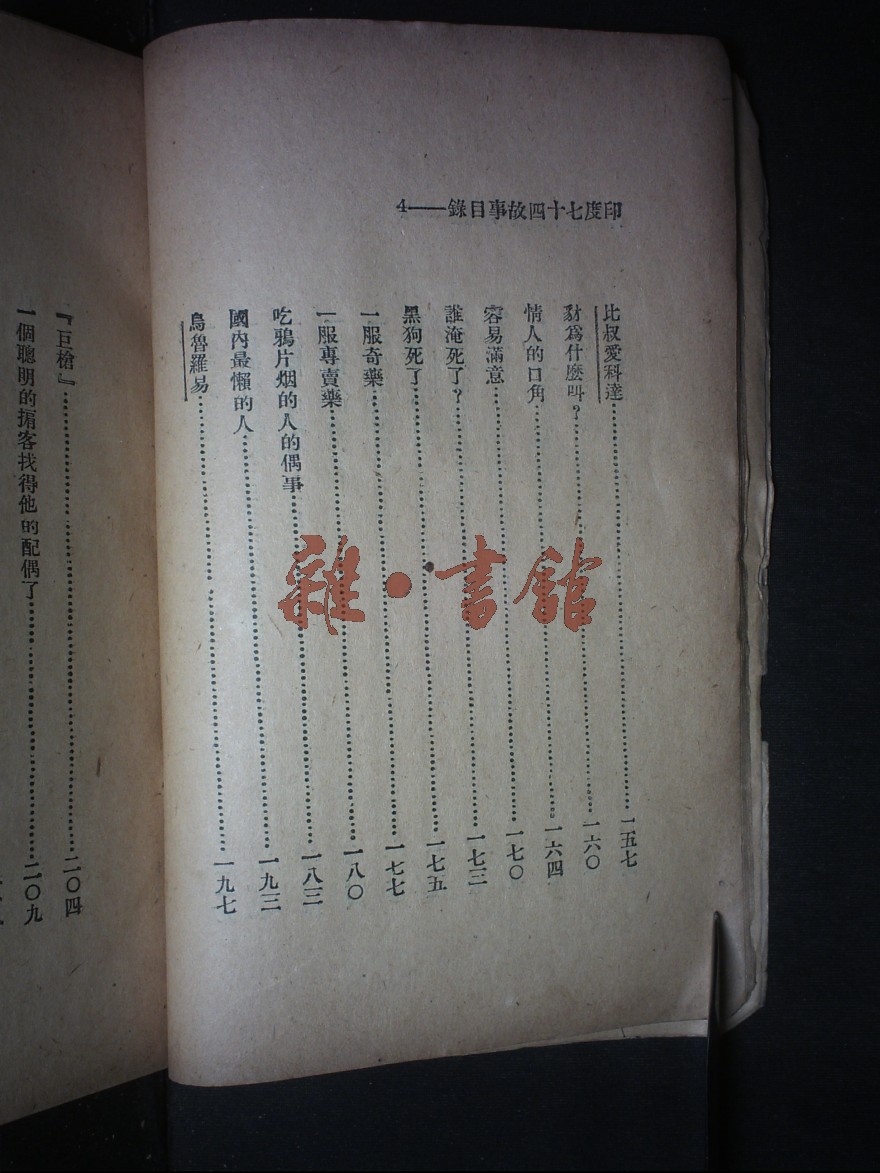 印度七十四故事目錄——4
比叔愛科達……一五七
豺爲什麼叫?……一六〇
情人的口角……一六四
容易滿意……一七〇
誰淹死了?……一七三
黑狗死了……一七五
一服奇藥……一七七
一服專賣藥……一八〇
吃鴉片烟的人的偶事……一八三
國內最懶的人……一九三
烏魯羅易……一九七
『巨槍』……二〇四
一個聰明的掮客找得他的配偶了……二〇九
雜·書館